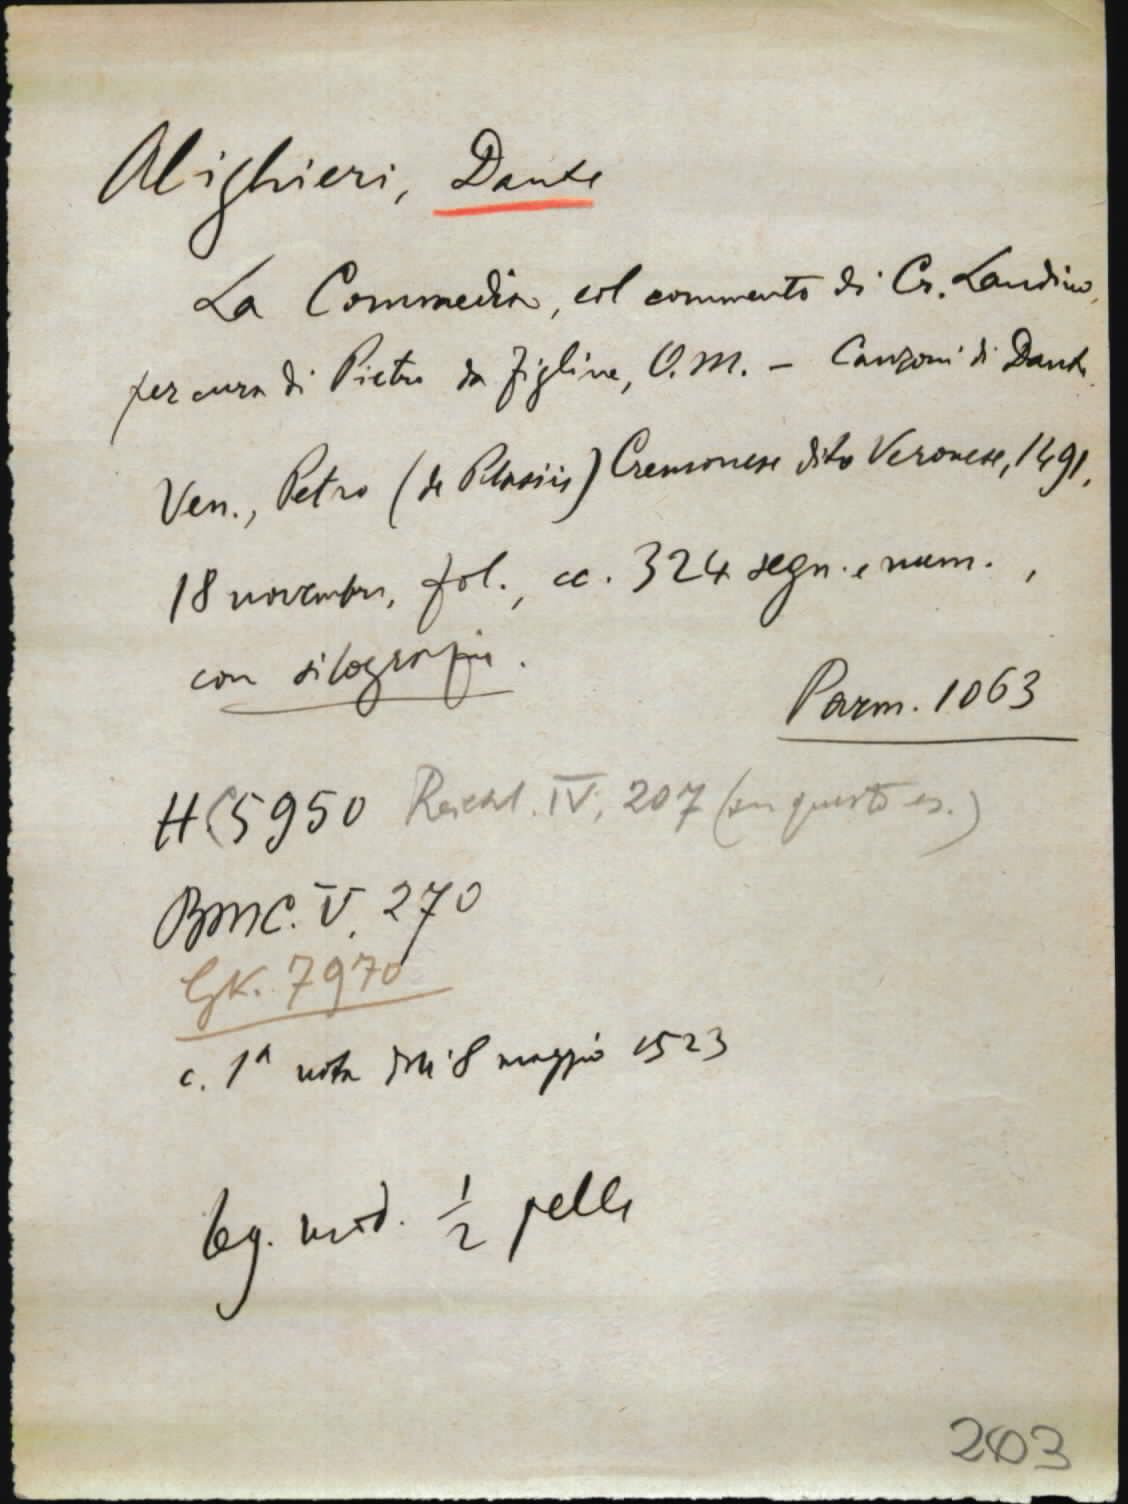 Alighieri, Dante
La Commedia, col commento di Cr. Landino,
per cura di Pietro da Figline, O.M. – Canzoni di Dante.
Ven., Petro (de Plasiis) Cremonese dito Veronese, 1491,
18 novembre, fol., cc. 324 segn. e num. ,
con silografie.
Parm. 1063
HC 5950 Reichl. IV, 207 (su questo es.)
BMC. V. 270
GK. 7970
c. 1ª nota dell'8 maggio 1523
leg. mod. ½ pelle
203